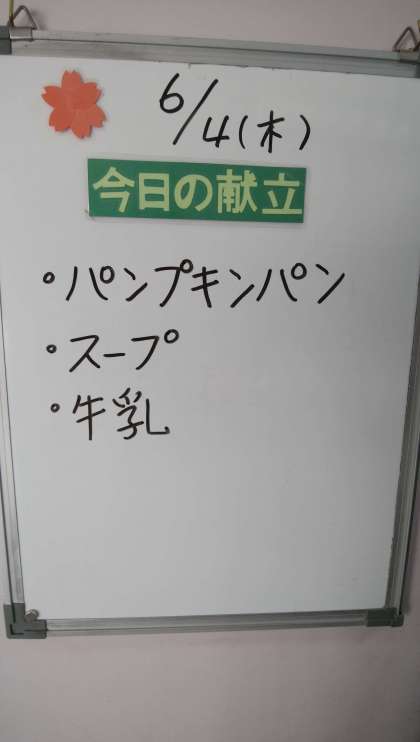 6/4(木)
今日の献立
・パンプキンパン
・スープ
・牛乳